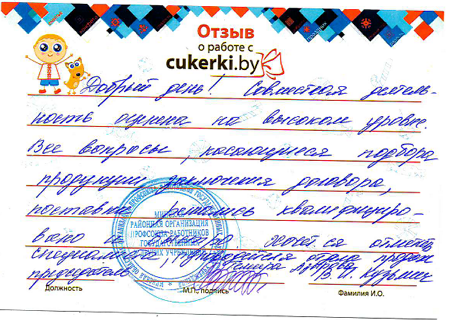 Отзыв
о работе с
cukerki.by
Добрый день! Совместная деятель-
ность оценена на высоком уровне.
Все вопросы, касающиеся подбора
продукции, заключения договора,
поставки решались квалифициро-
вано и хочется отметить
специалиста, руководителя отдела продаж
председатель В.А. Кузьмич
РАЙОННАЯ ОРГАНИЗАЦИЯ
ПРОФСОЮЗА РАБОТНИКОВ
ГОСУДАРСТВЕННЫХ
Должность М.П., подпись Фамилия И.О.